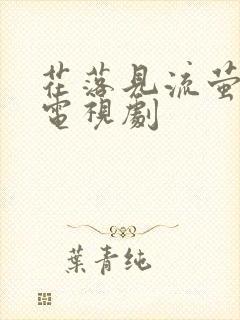 花落見流萤
電視劇
葉青純